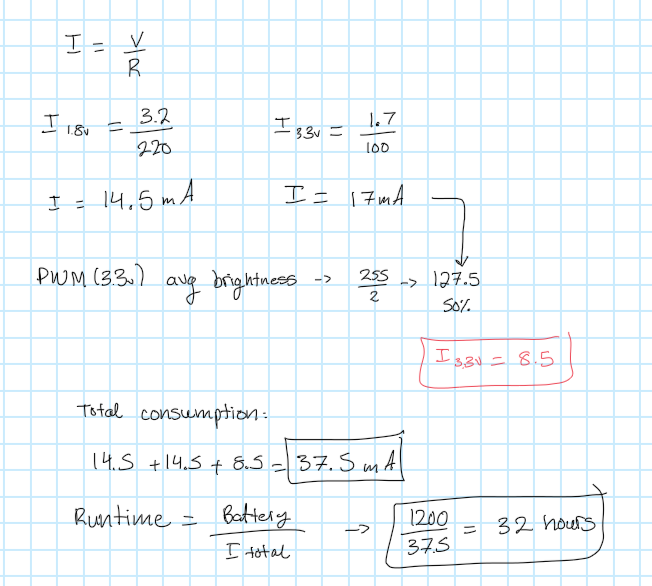 I = V/R
I 1.8v = 3.2/220
I 3.3v = 1.7/100
I = 14.5 mA
I = 17mA
PWM (3.3v) avg brightness -> 255/2 -> 127.5
50%
I 3.3v = 8.5
Total consumption:
14.5 + 14.5 + 8.5 = 37.5 mA
Runtime = Battery/I total -> 1200/37.5 = 32 hours